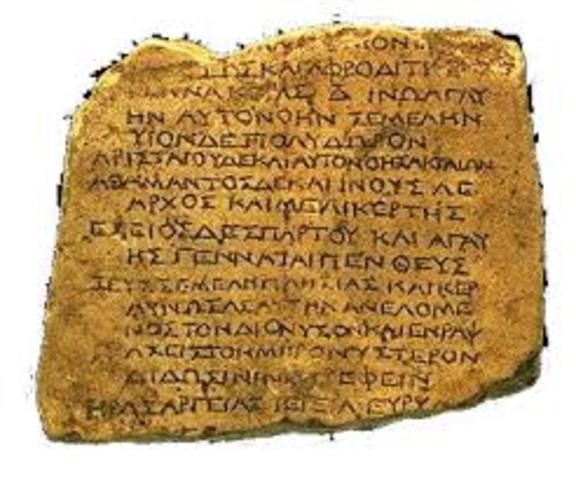 ΚΑΙ ΑΦΡΟΔΙΤΗ
Δ ΙΝΩ ΑΓΑΥ
ΗΝ ΑΥΤΟΝΟΗΝ ΣΕΜΕΛΗΝ
ΥΙΟΝ ΔΕ ΠΟΛΥΔΩΡΟΝ
ΑΡΙΣΤΑΙΟΥ ΔΕ ΚΑΙ ΑΥΤΟΝΟΗΣ ΑΚΤΑΙΩΝ
ΑΘΑΜΑΝΤΟΣ ΔΕ ΚΑΙ ΙΝΟΥΣ ΛΕ
ΑΡΧΟΣ ΚΑΙ ΜΕΛΙΚΕΡΤΗΣ
ΔΕ ΣΠΑΡΤΟΥ ΚΑΙ ΑΓΑΥ
ΗΣ ΓΕΝΝΑΤΑΙ ΠΕΝΘΕΥΣ
ΖΕΥΣ ΣΕΜΕΛΗ ΠΛΗΣΙΑΣ ΚΑΙ ΚΕΡ
ΑΥΝΩΣΑΣ ΑΥΤΗΝ ΑΝΕΛΟΜΕ
ΝΟΣ ΤΟΝ ΔΙΟΝΥΣΟΝ ΚΑΙ ΕΝΡΑΨ
ΑΣ ΕΙΣ ΤΟΝ ΜΗΡΟΝ ΥΣΤΕΡΟΝ
ΔΙΔΩΣΙΝ ΙΝΟΙ ΤΡΕΦΕΙΝ
ΗΡΑΣ ΑΡΓΕΙΑΣ ΕΥΡΥ